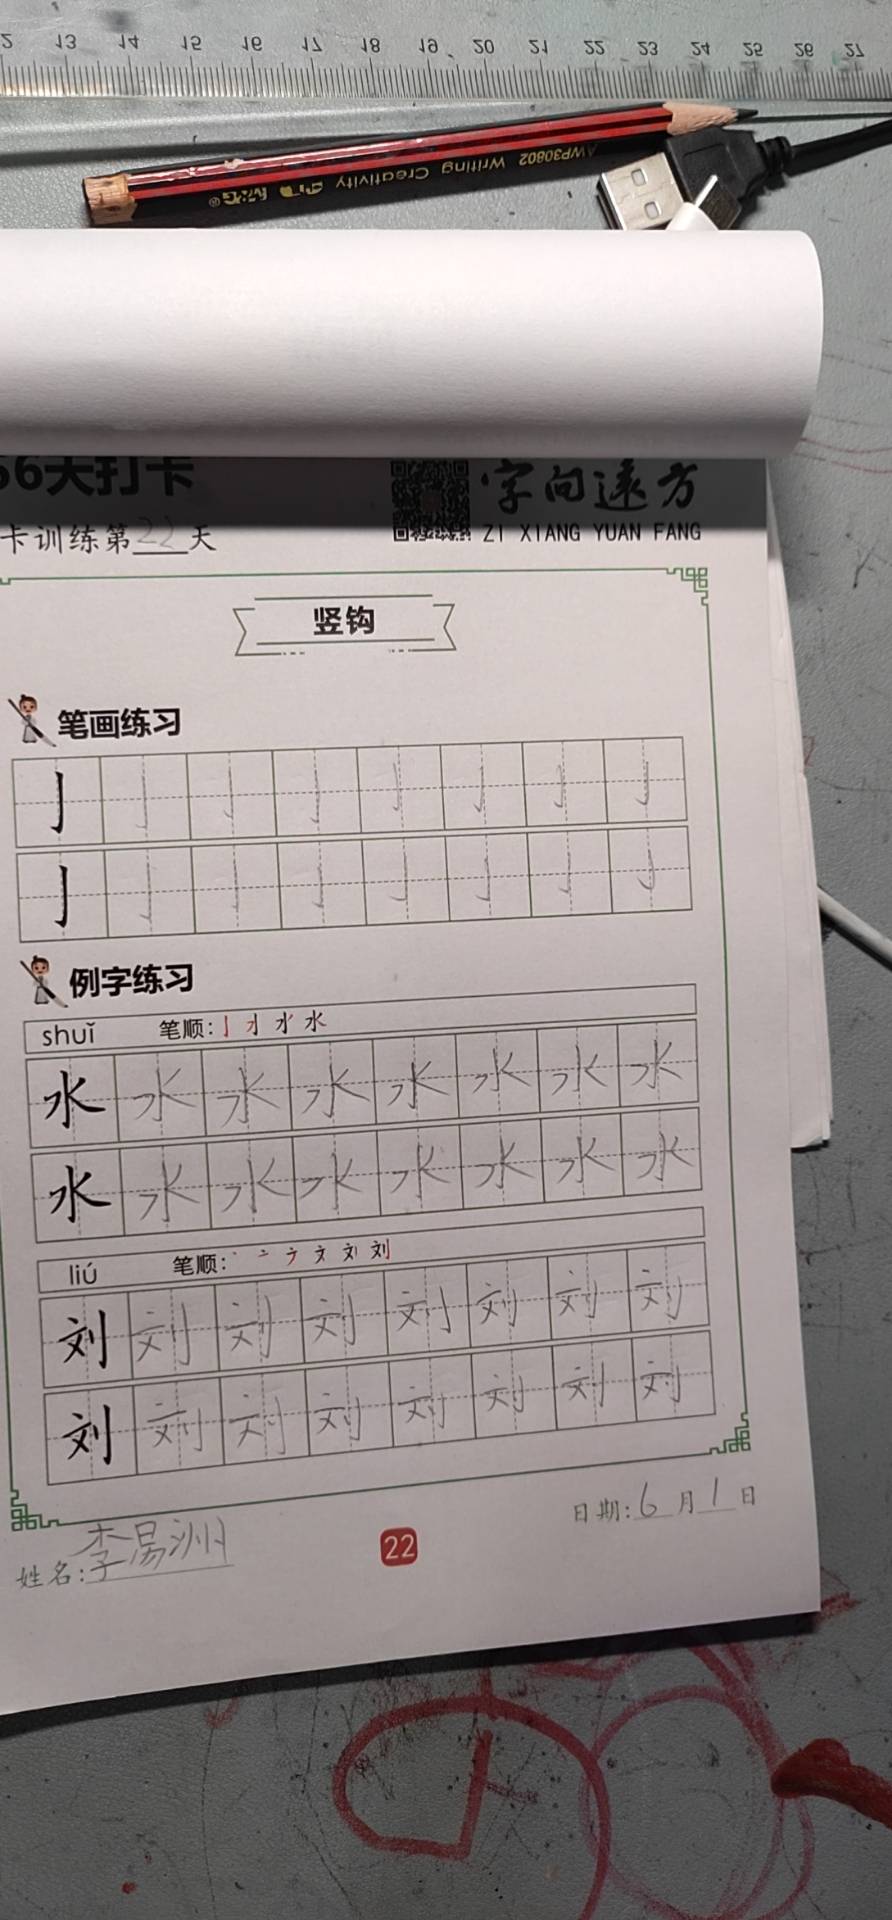 2 13 14 15 16 17 18 19 20 21 22 23 24 25 26 27
AWP30802 Writing Creativity
66天打卡
字向远方
卡训练第22天
ZI XIANG YUAN FANG
竖钩
笔画练习
亅 亅 亅 亅 亅 亅 亅 亅
亅 亅 亅 亅 亅 亅 亅 亅
例字练习
shuǐ 笔顺:
水 水 水 水 水 水 水 水
水 水 水 水 水 水 水 水
liú 笔顺:
刘 刘 刘 刘 刘 刘 刘 刘
刘 刘 刘 刘 刘 刘 刘 刘
日期:6月1日
姓名:李易洲
22